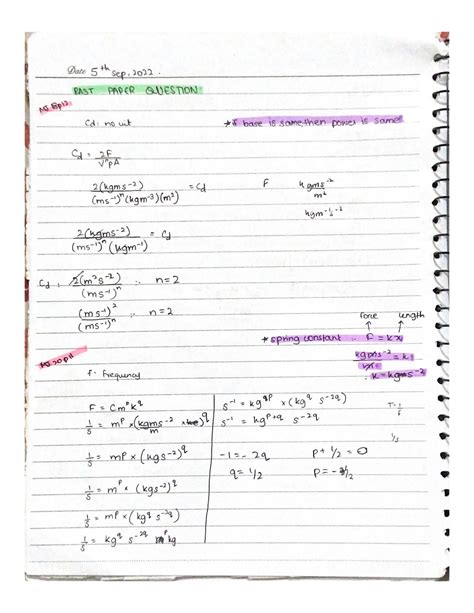 Date 5th Sep, 2022.
PAST PAPER QUESTION
Cd: no uit
* if base is same, then power is same
Cd = 2F / VⁿρA
2(kgms⁻²) / (ms⁻¹)ⁿ(kgm⁻³)(m²) = Cd
F kgms⁻² / m²
kgm⁻¹s⁻²
2(kgms⁻²) / (ms⁻¹)ⁿ(kgm⁻¹) = Cd
Cd : 2(m²s⁻²) / (ms⁻¹)ⁿ ∴ n=2
(ms⁻¹)² / (ms⁻¹)ⁿ ∴ n=2
Force length
* spring constant ∴ F = kx
kgms⁻² / m = k
∴ k = kgms⁻²
MJ 20 p11
f - frequency
F = Cmᵖk^q
1/s = mᵖ × (kgms⁻² / m)^q
1/s = mᵖ × (kgs⁻²)^q
1/s = mᵖ × (kgs⁻²)^q
1/s = mᵖ × (kg^q s⁻²q)
1/s = kg^q s⁻²q kg
s⁻¹ = kg^p × (kg^q s⁻²q)
s⁻¹ = kg^p+q s⁻²q
-1 = -2q
q = 1/2
p + 1/2 = 0
p = -1/2
T = 1/f
1/s